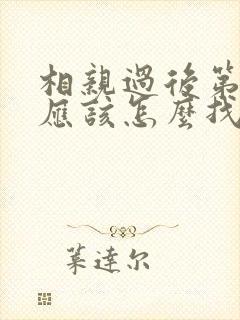 相親過後第
應該怎麼找
葉達尔